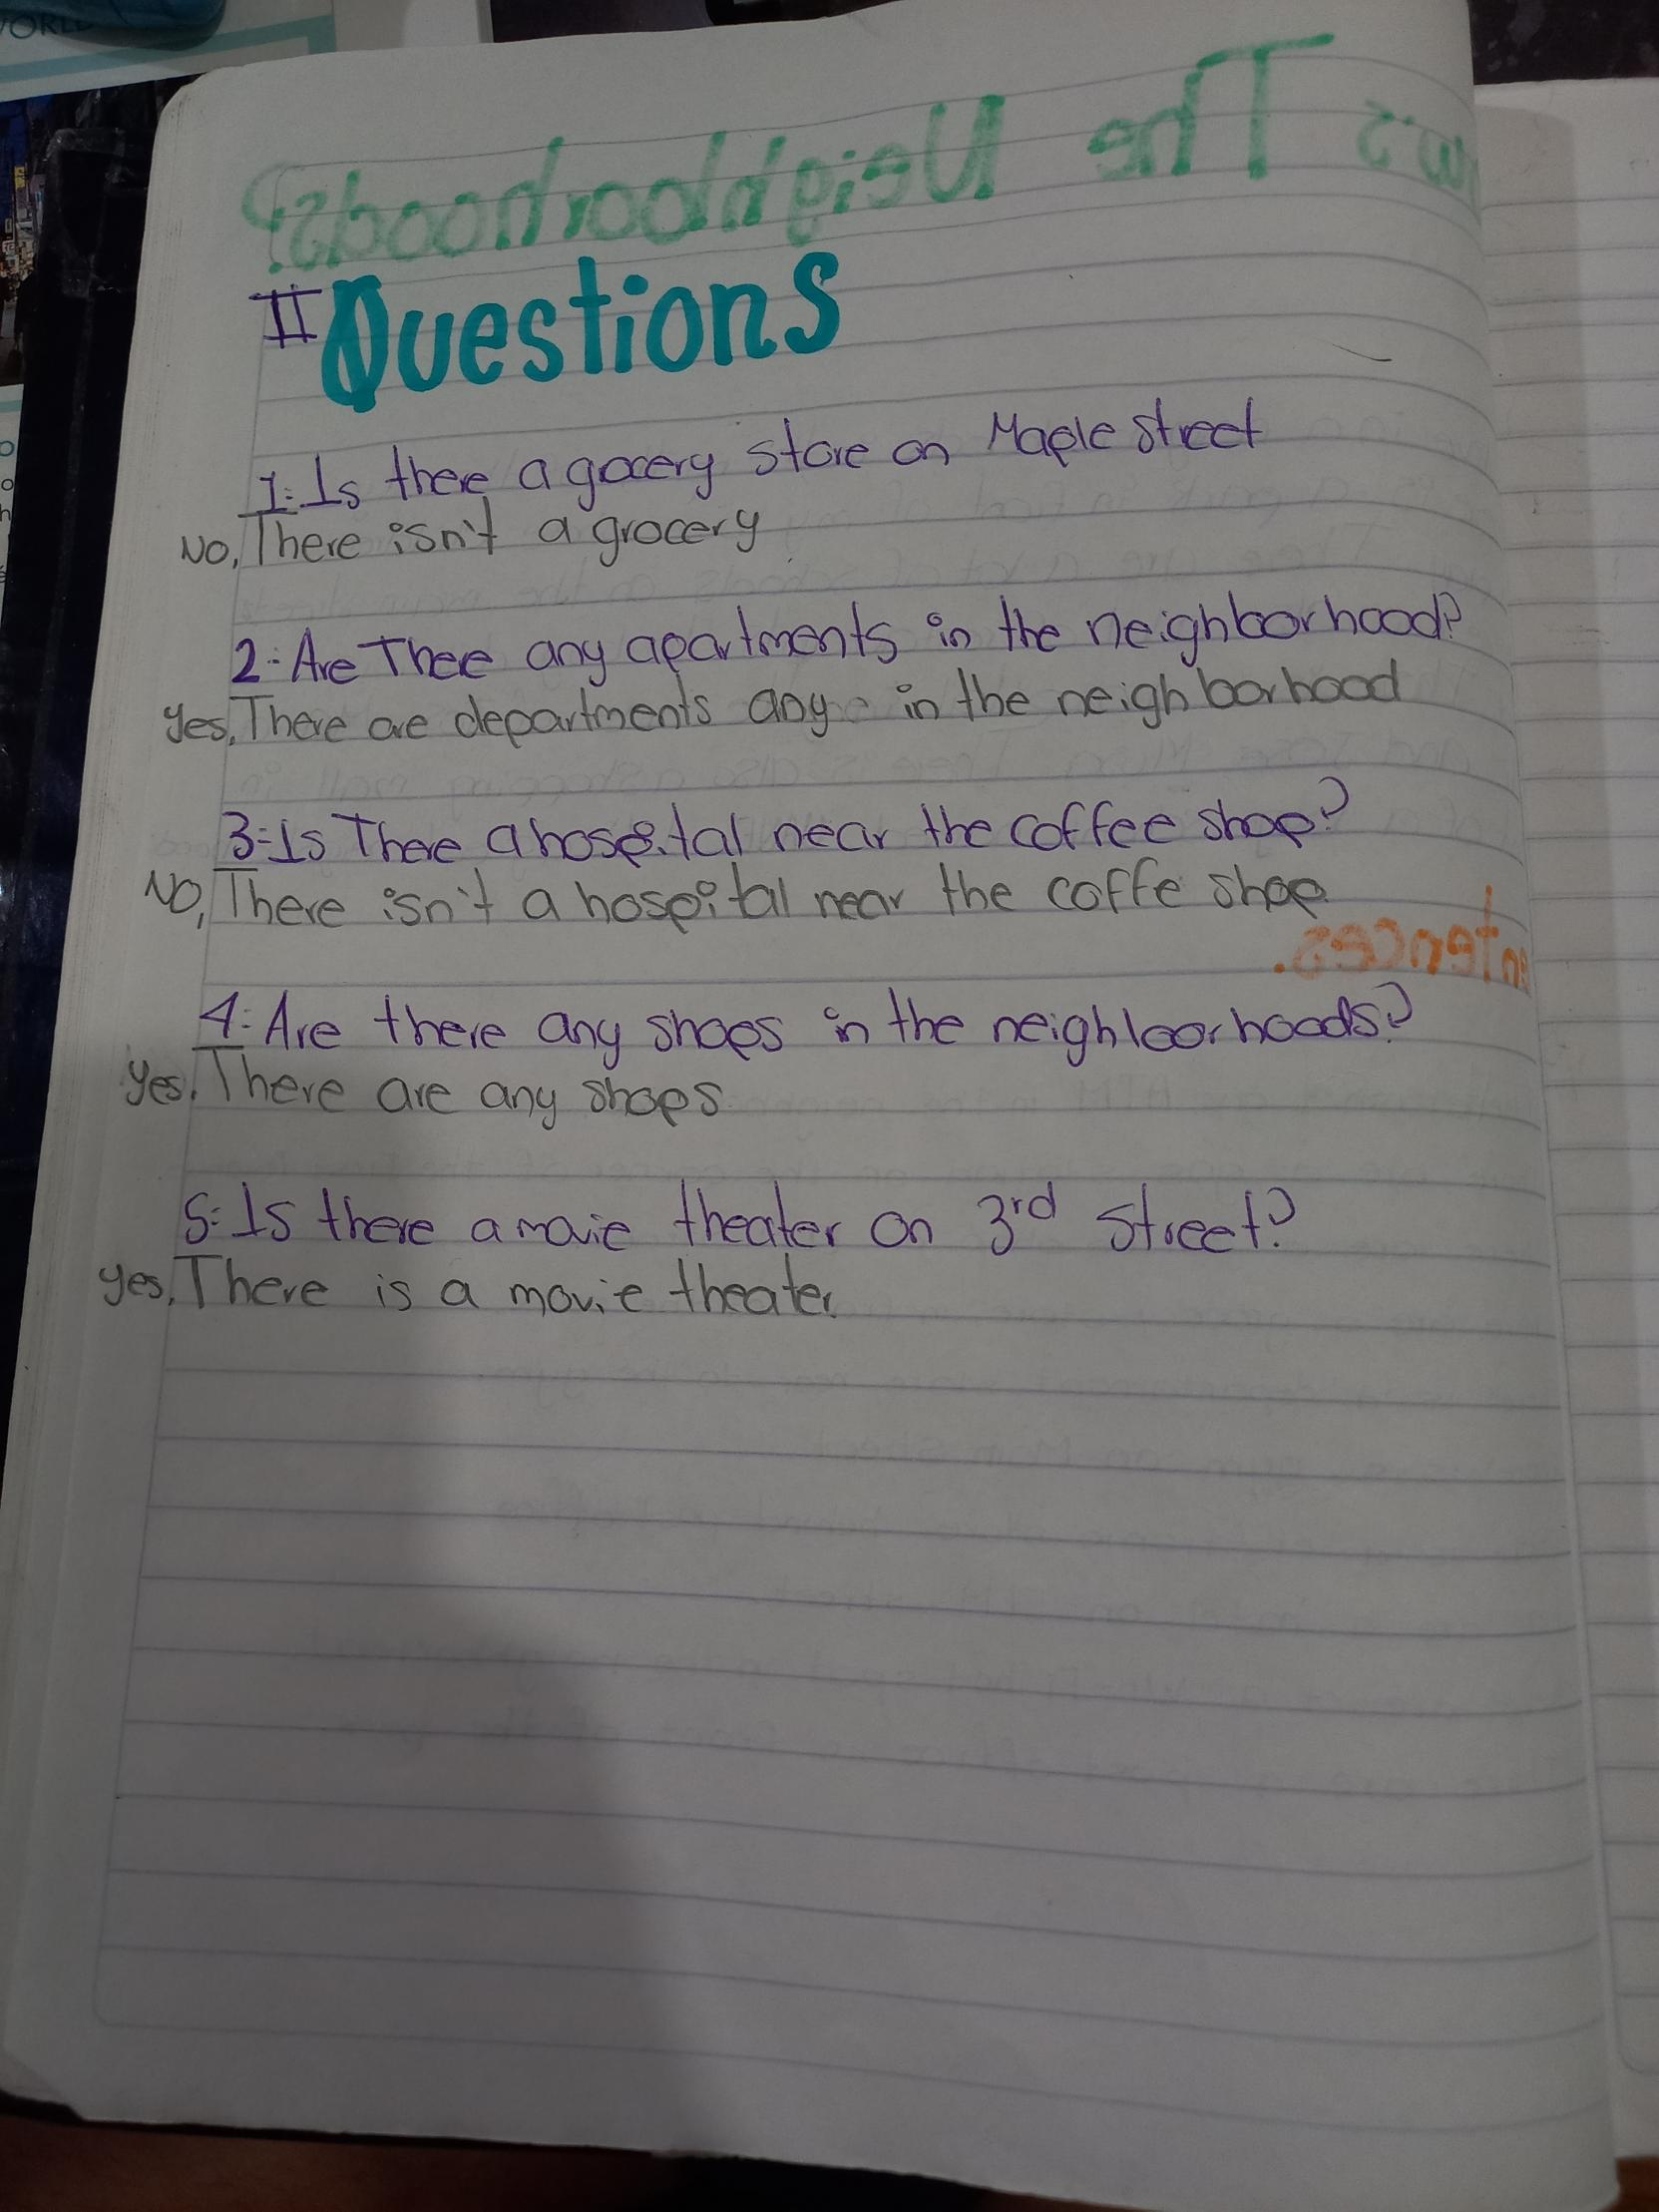 II Questions
1.- Is there a gocery store on Maple street
No, There isn't a grocery
2.- Are There any apartments in the neighborhood?
Yes, There are departments any in the neighborhood
3.- Is There a hospital near the coffee shop?
No, There isn't a hospital near the coffe shop
4.- Are there any shops in the neighboorhoods?
Yes. There are any shops
5.- Is there a movie theater on 3rd street?
Yes, There is a movie theater.